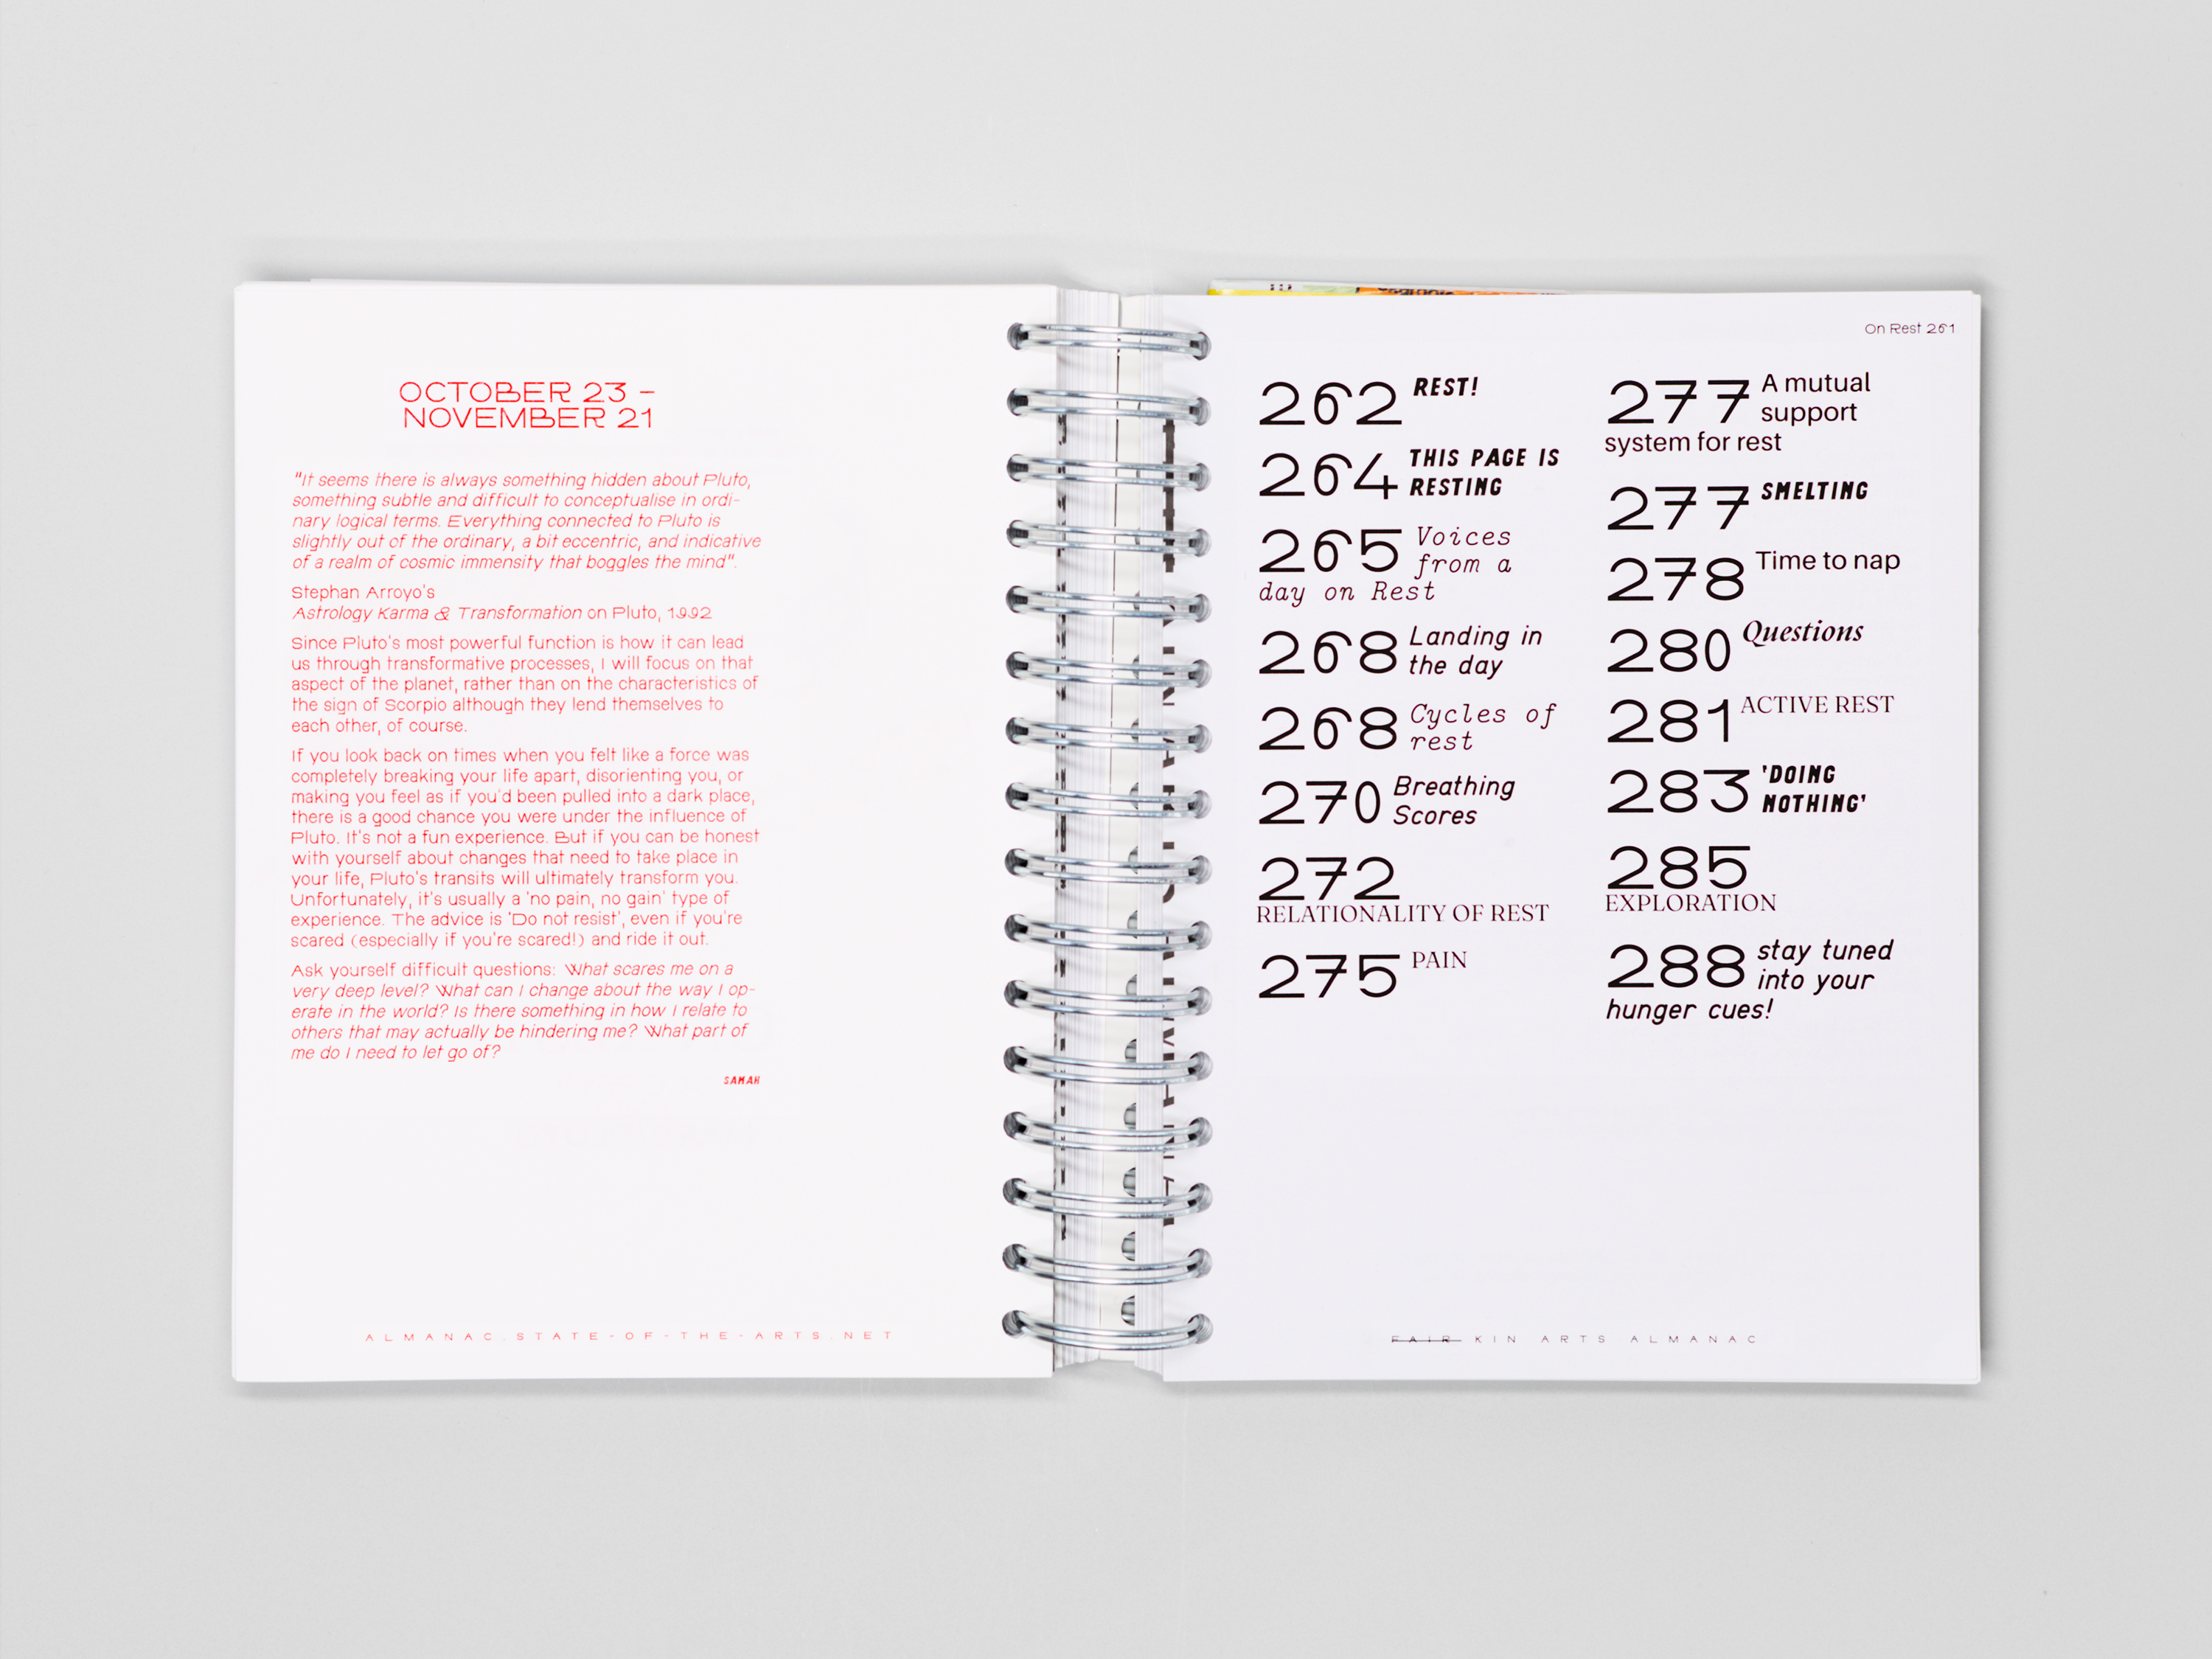 OCTOBER 23 –
NOVEMBER 21
"It seems there is always something hidden about Pluto,
something subtle and difficult to conceptualise in ordi-
nary logical terms. Everything connected to Pluto is
slightly out of the ordinary, a bit eccentric, and indicative
of a realm of cosmic immensity that boggles the mind".
Stephan Arroyo's
Astrology Karma & Transformation on Pluto, 1992
Since Pluto's most powerful function is how it can lead
us through transformative processes, I will focus on that
aspect of the planet, rather than on the characteristics of
the sign of Scorpio although they lend themselves to
each other, of course.
If you look back on times when you felt like a force was
completely breaking your life apart, disorienting you, or
making you feel as if you'd been pulled into a dark place,
there is a good chance you were under the influence of
Pluto. It's not a fun experience. But if you can be honest
with yourself about changes that need to take place in
your life, Pluto's transits will ultimately transform you.
Unfortunately, it's usually a 'no pain, no gain' type of
experience. The advice is 'Do not resist', even if you're
scared (especially if you're scared!) and ride it out.
Ask yourself difficult questions: What scares me on a
very deep level? What can I change about the way I op-
erate in the world? Is there something in how I relate to
others that may actually be hindering me? What part of
me do I need to let go of?
SAMAH
ALMANAC.STATE-OF-THE-ARTS.NET
On Rest 261
262 REST!
264 THIS PAGE IS
RESTING
265 Voices
from a
day on Rest
268 Landing in
the day
268 Cycles of
rest
270 Breathing
Scores
272
RELATIONALITY OF REST
275 PAIN
277 A mutual
support
system for rest
277 SMELTING
278 Time to nap
280 Questions
281 ACTIVE REST
283 'DOING
NOTHING'
285
EXPLORATION
288 stay tuned
into your
hunger cues!
FAIR KIN ARTS ALMANAC